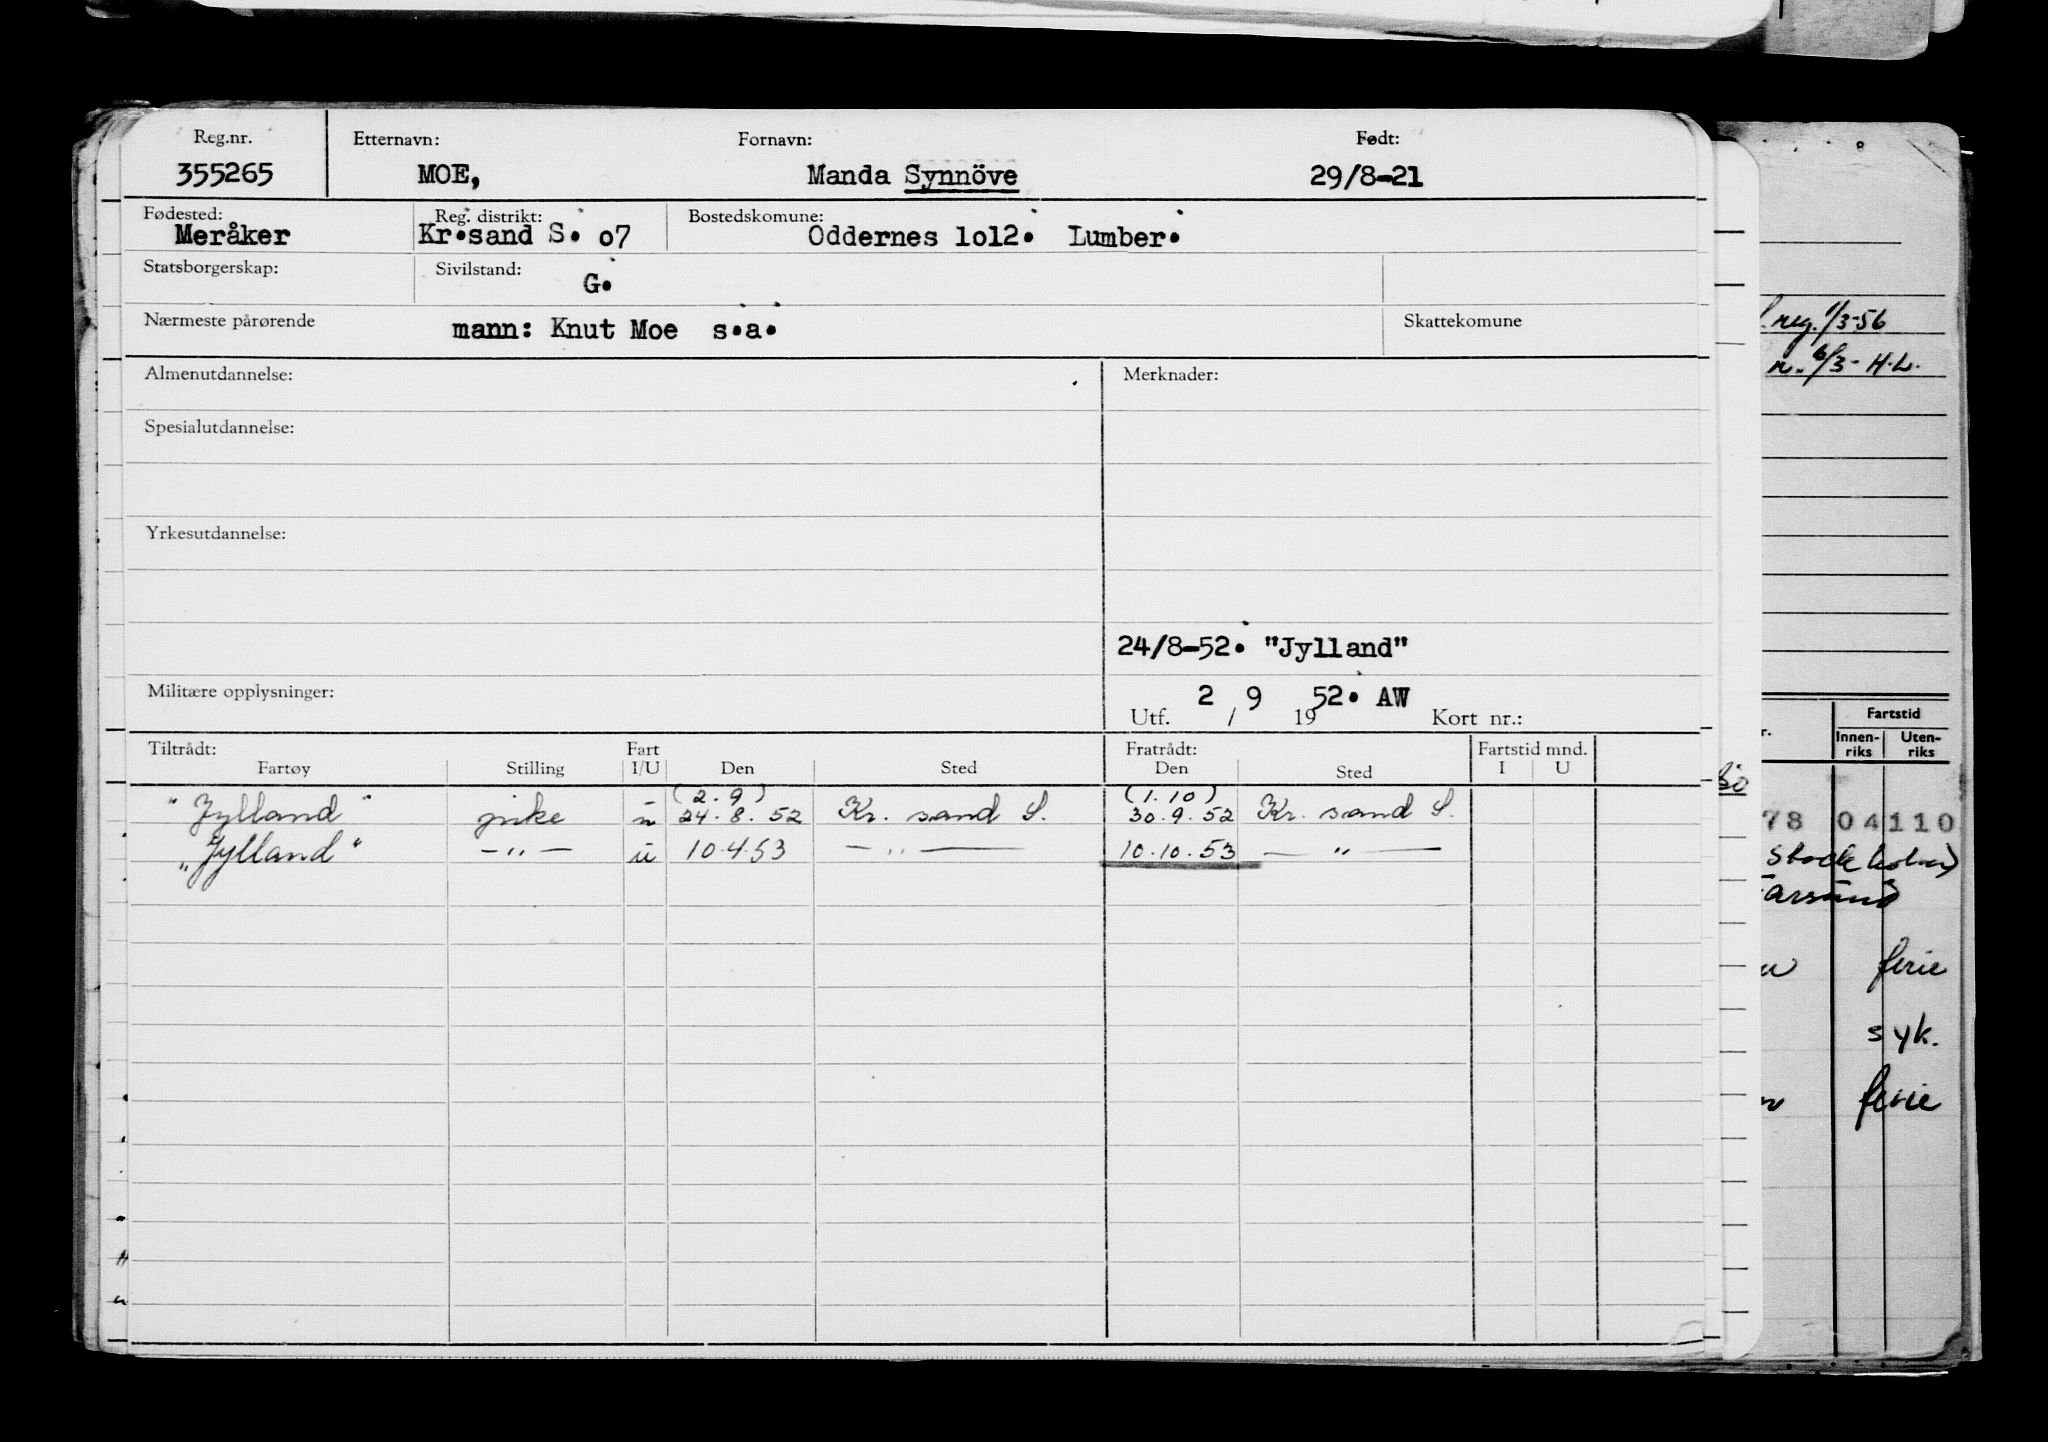 Reg.nr. Etternavn: Fornavn: Født:
355265 MOE, Manda Synnöve 29/8-21
Fødested: Reg. distrikt: Bostedskomune:
Meråker Kr.sand S. o7 Oddernes 1o12. Lumber.
Statsborgerskap: Sivilstand:
G.
Nærmeste pårørende mann: Knut Moe s.a. Skattekomune
Almenutdannelse: Merknader:
Spesialutdannelse:
Yrkesutdannelse:
24/8-52. "Jylland"
Militære opplysninger: 2 9 52. AW
Utf. / 19 Kort nr.:
Tiltrådt: Fart Fratrådt: Fartstid mnd.
Fartøy Stilling I/U Den Sted Den Sted I U
(2.9) (1.10)
"Jylland" pike u 24.8.52 Kr. sand S. 30.9.52 Kr. sand S.
"Jylland" —"— u 10.4.53 —"— 10.10.53 —"—
reg. 1/3-56
6/3- H.L.
Fartstid
r. Innen- Uten-
riks riks
78 04110
Stockholm)
arsund
ferie
syk.
ferie